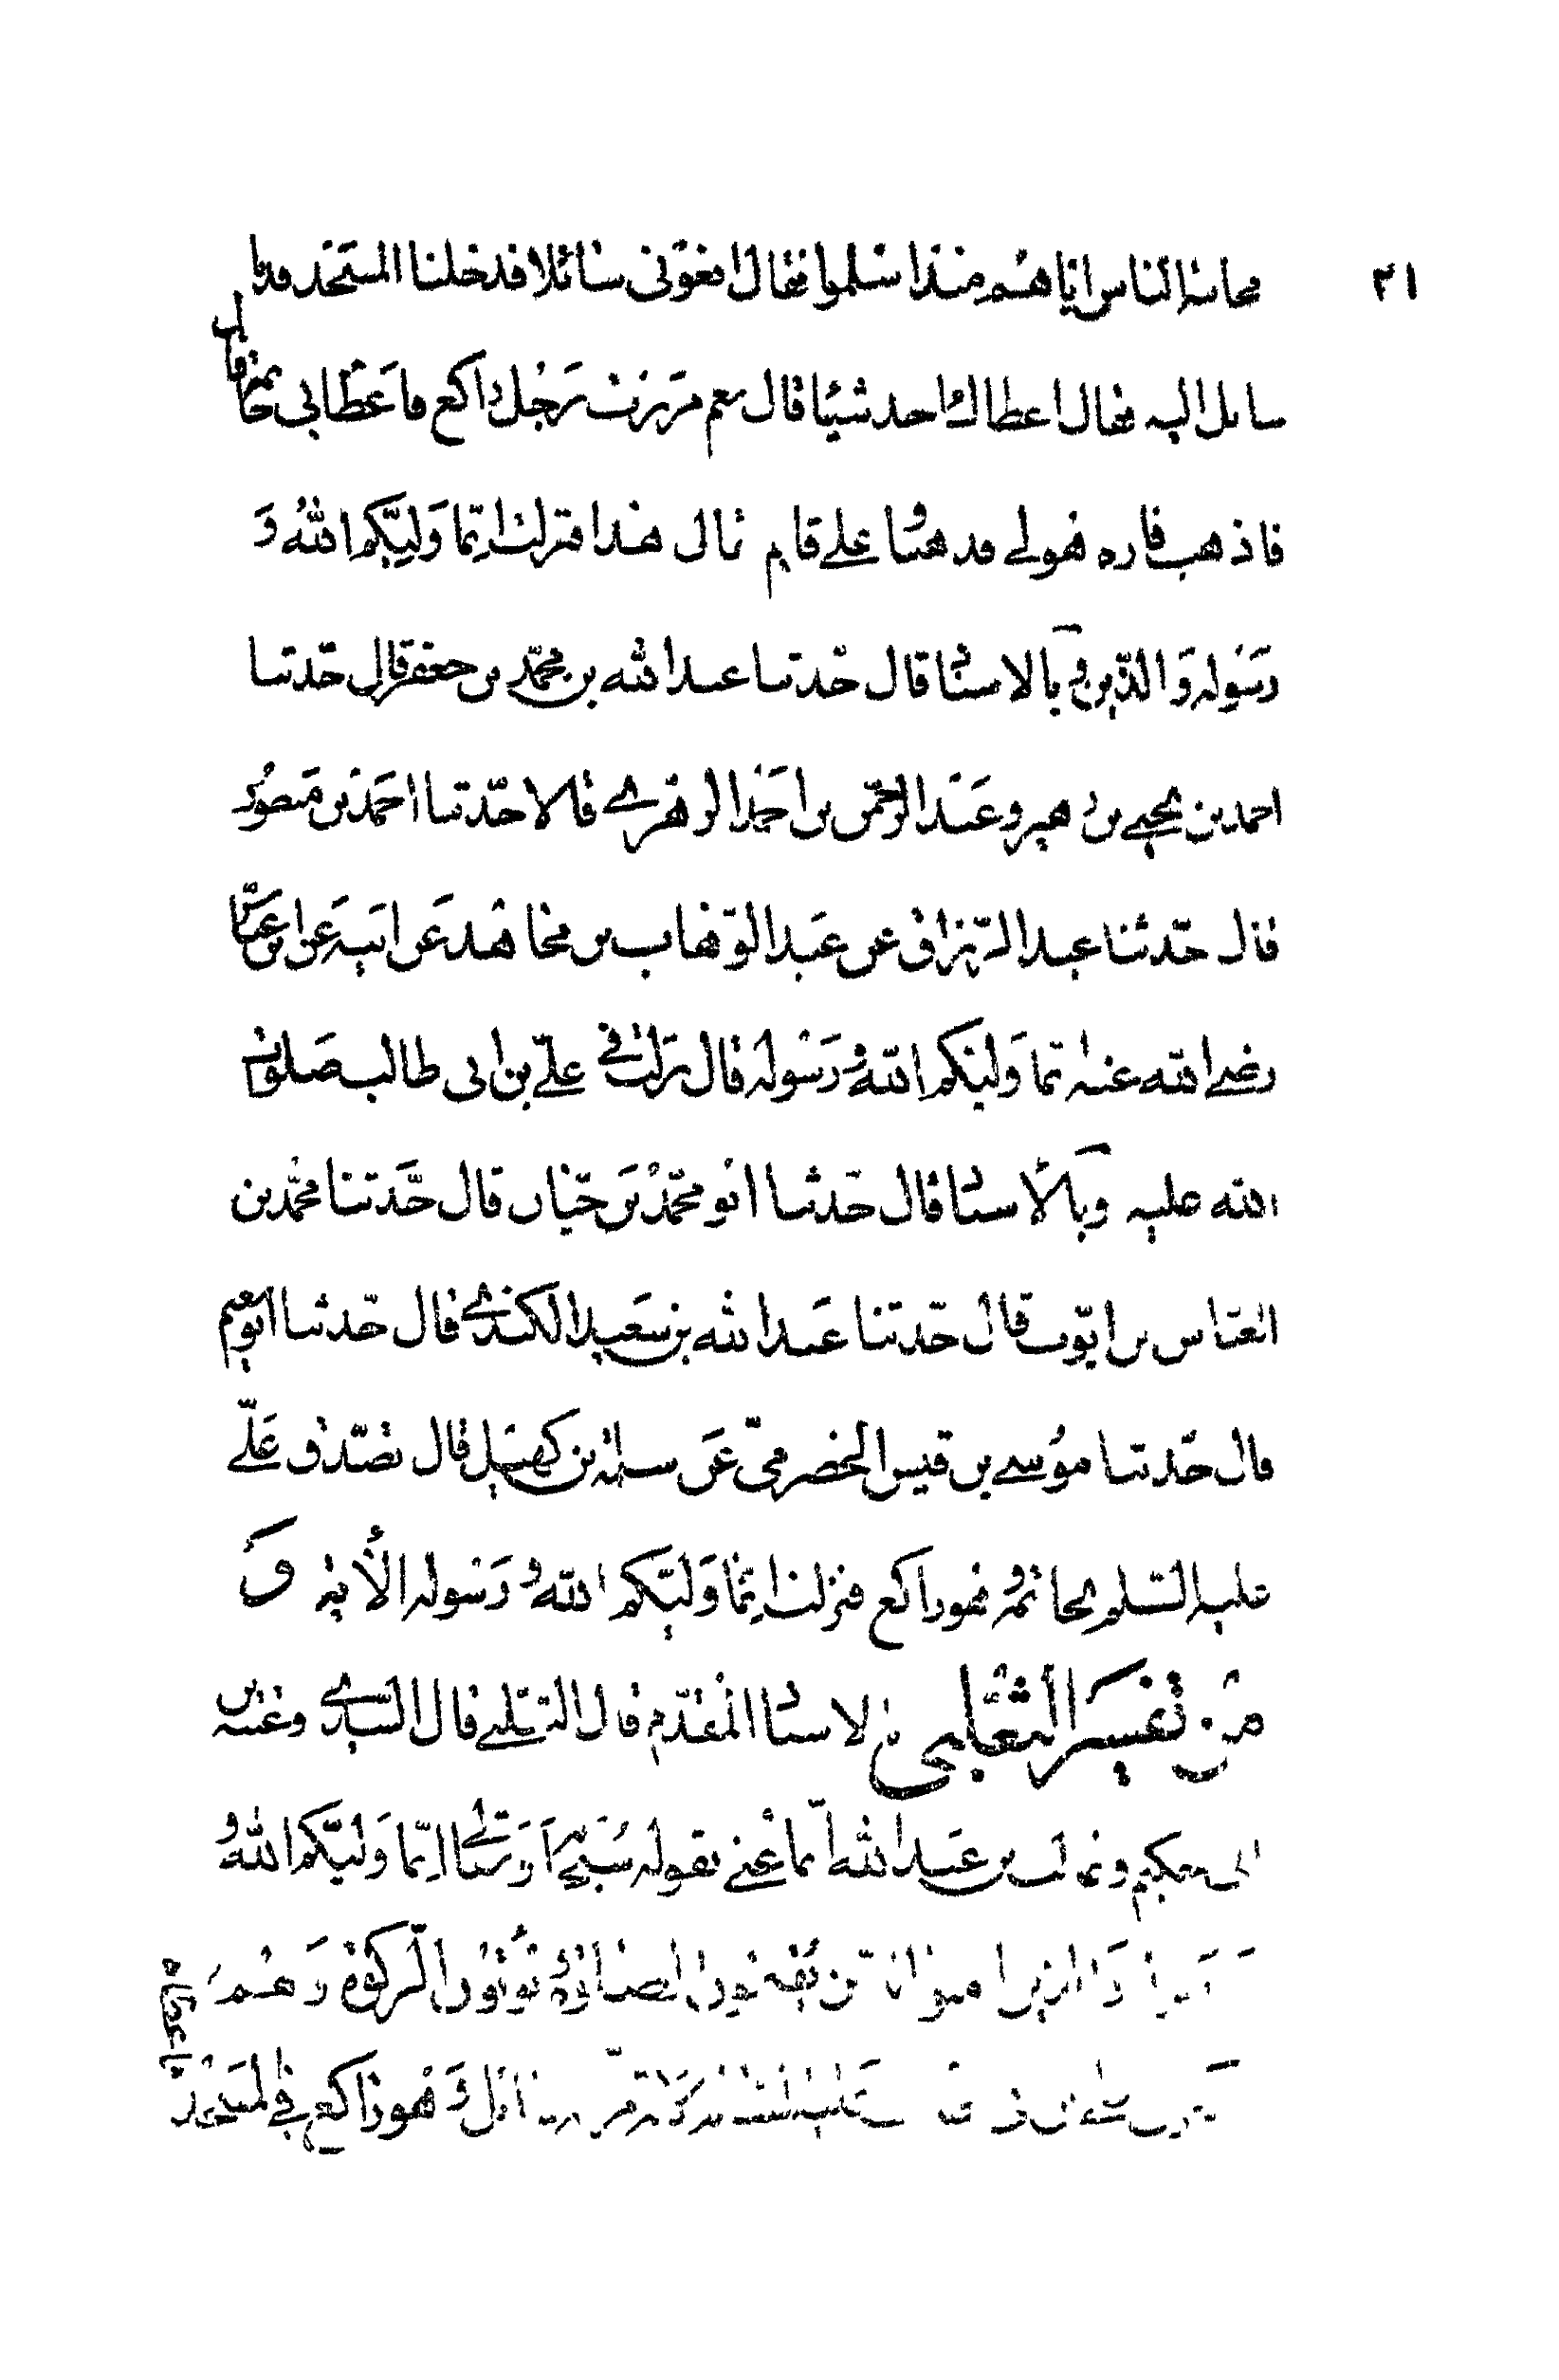 ٢١
مجانبة الناس ايّاهم منذ اسلموا فقال ابغوني سائلا فدخلنا المسجد فدنا
سائل اليه فقال اعطاك احد شيئا قال نعم مررت برجل راكع فاعطاني خاتمه قال
فاذهب فاره هو لي فذهبنا وعلي قايم قال هذا فنزلت انّما وليّكم الله و
رسوله والذين وبالاسناد قال حدثنا عبد الله بن محمّد بن جعفر قال حدّثنا
احمد بن يحيى بن زهير وعبد الرحمن بن احمد الزهري قالا حدّثنا احمد بن منصور
قال حدّثنا عبد الرزاق عن عبد الوهاب بن مجاهد عن ابيه عن ابن عبّاس
رضي الله عنه انما وليكم الله ورسوله قال نزلت في عليّ بن ابي طالب صلوات
الله عليه وبالاسناد قال حدّثنا ابو محمّد بن حيّان قال حدّثنا محمّد بن
العبّاس بن ايّوب قال حدّثنا عبد الله بن سعيد الكندي قال حدّثنا ابو نعيم
قال حدّثنا موسى بن قيس الحضرميّ عن سلمة بن كهيل قال تصدّق عليّ
عليه السلم بخاتمه وهو راكع فنزلت انّما وليّكم الله ورسوله الآية و
من تفسير الثعلبي بالاسناد المقدّم قال الثعلبي قال السّدي وعتبه بن
ابي حكيم وغالب بن عبد الله انّما عنى بقوله سبحانه وتعالى انّما وليّكم الله و
رسوله والذين امنوا الذين يقيمون الصلوة ويؤتون الزكوة وهم
عليه السلم لانه مرّ به سائل وهو راكع في المسجد فاعطاه